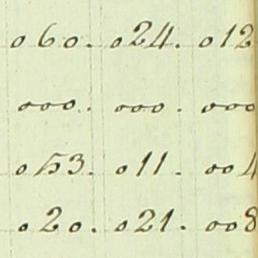 060. 024. 012
000. 000. 000
053. 011. 004
020. 021. 008